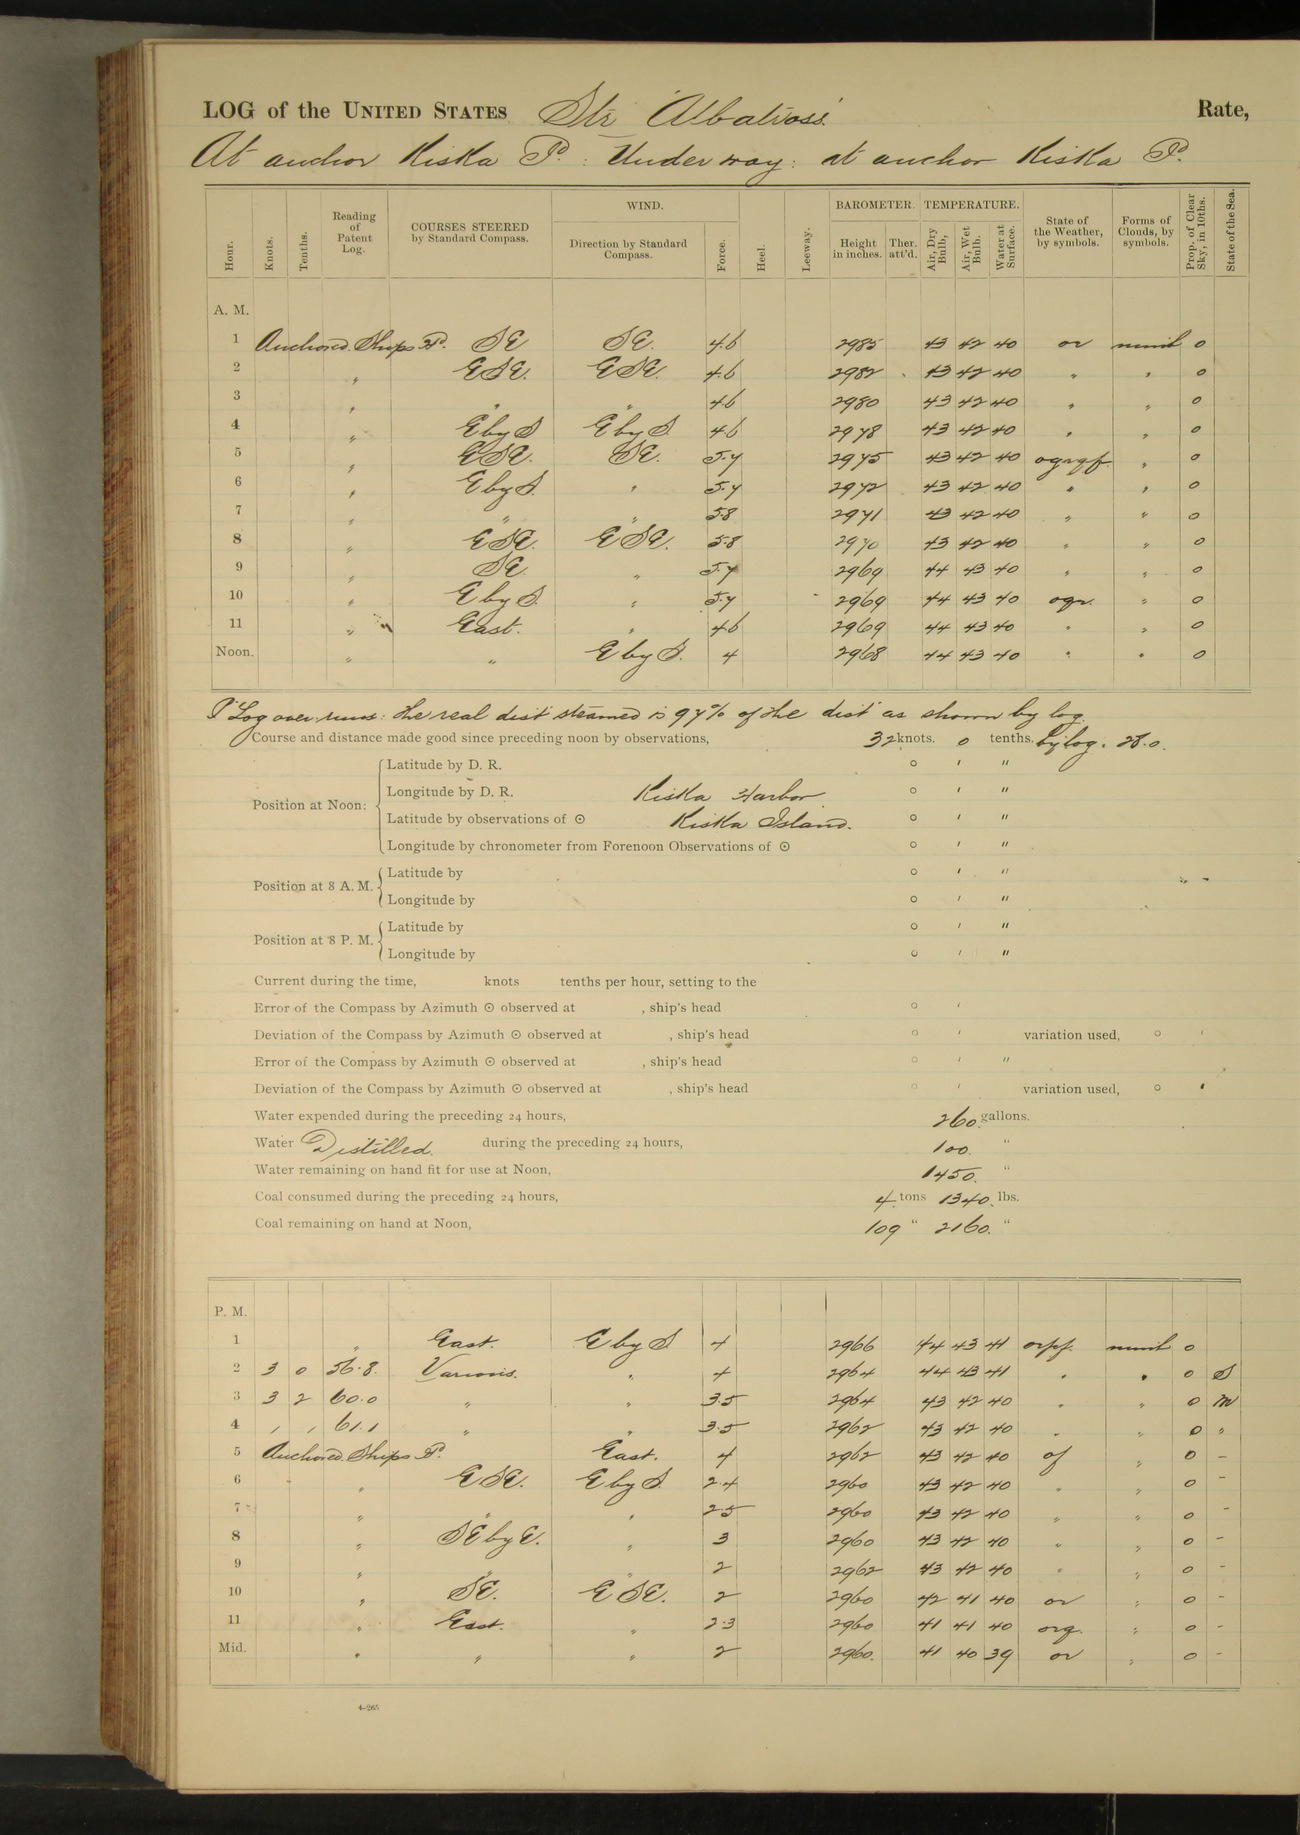 LOG of the UNITED STATES Str "Albatross" Rate,
At anchor Kiska Id : Underway : at anchor Kiska Id.
Hour. Knots. Tenths. Reading of Patent Log. COURSES STEERED by Standard Compass. WIND. Direction by Standard Compass. Force. Heel. Leeway. BAROMETER. Height in inches. Ther. att'd. TEMPERATURE. Air, Dry Bulb, Air, Wet Bulb. Water at Surface. State of the Weather, by symbols. Forms of Clouds, by symbols. Prop. of Clear Sky, in 10ths. State of the Sea.
A. M.
1 Anchored. Ships Hd. SE SE. 4.6 2985 43 42 40 or nimb 0
2 " ESE. ESE. 4.6 2982 43 42 40 " " 0
3 " " " 4.6 2980 43 42 40 " " 0
4 " E by S E by S. 4.6 2978 43 42 40 " " 0
5 " ESE. SE. 5.7 2975 43 42 40 ogrqf. " 0
6 " E by S. " 5.7 2972 43 42 40 " " 0
7 " " " 5.8 2971 43 42 40 " " 0
8 " ESE. ESE. 5.8 2970 43 42 40 " " 0
9 " SE. " 5.7 2969 44 43 40 " " 0
10 " E by S. " 5.7 2969 44 43 40 oqr. " 0
11 " East. " 4.6 2969 44 43 40 " " 0
Noon. " " E by S. 4 2968 44 43 40 " " 0
Log over-runs: the real dist steamed is 97% of the dist as shown by log.
Course and distance made good since preceding noon by observations, 32 knots. 0 tenths. by log. 28.0.
Position at Noon:
Latitude by D. R. ° ′ ″
Longitude by D. R. Kiska Harbor ° ′ ″
Latitude by observations of ☉ Kiska Island. ° ′ ″
Longitude by chronometer from Forenoon Observations of ☉ ° ′ ″
Position at 8 A. M.
Latitude by ° ′ ″
Longitude by ° ′ ″
Position at 8 P. M.
Latitude by ° ′ ″
Longitude by ° ′ ″
Current during the time, knots tenths per hour, setting to the
Error of the Compass by Azimuth ☉ observed at , ship's head ° ′
Deviation of the Compass by Azimuth ☉ observed at , ship's head ° ′ variation used, ° ′
Error of the Compass by Azimuth ☉ observed at , ship's head ° ′ ″
Deviation of the Compass by Azimuth ☉ observed at , ship's head ° ′ variation used, ° ′
Water expended during the preceding 24 hours, 260. gallons.
Water Distilled. during the preceding 24 hours, 100. "
Water remaining on hand fit for use at Noon, 1450. "
Coal consumed during the preceding 24 hours, 4. tons 1340. lbs.
Coal remaining on hand at Noon, 109 " 2160. "
P. M.
1 " East. E by S 4 2966 44 43 41 orpf. nimb 0
2 3 0 56.8. Various. " 4 2964 44 43 41 " " 0 S
3 3 2 60.0 " " 3.5 2964 43 42 40 " " 0 M
4 , , 61.1 " " 3.5 2962 43 42 40 " " 0 "
5 Anchored. Ships Hd. East. 4 2962 43 42 40 of " 0 -
6 " ESE. E by S. 2.4 2960 43 42 40 " " 0 -
7 " " " 2.5 2960 43 42 40 " " 0 -
8 " SE by E. " 3 2960 43 42 40 " " 0 -
9 " " " 2 2962 43 42 40 " " 0 -
10 " SE. ESE. 2 2960 42 41 40 or " 0 -
11 " East. " 2.3 2960 41 41 40 orq. " 0 -
Mid. " " " 2 2960. 41 40 39 or " 0 -
4-265